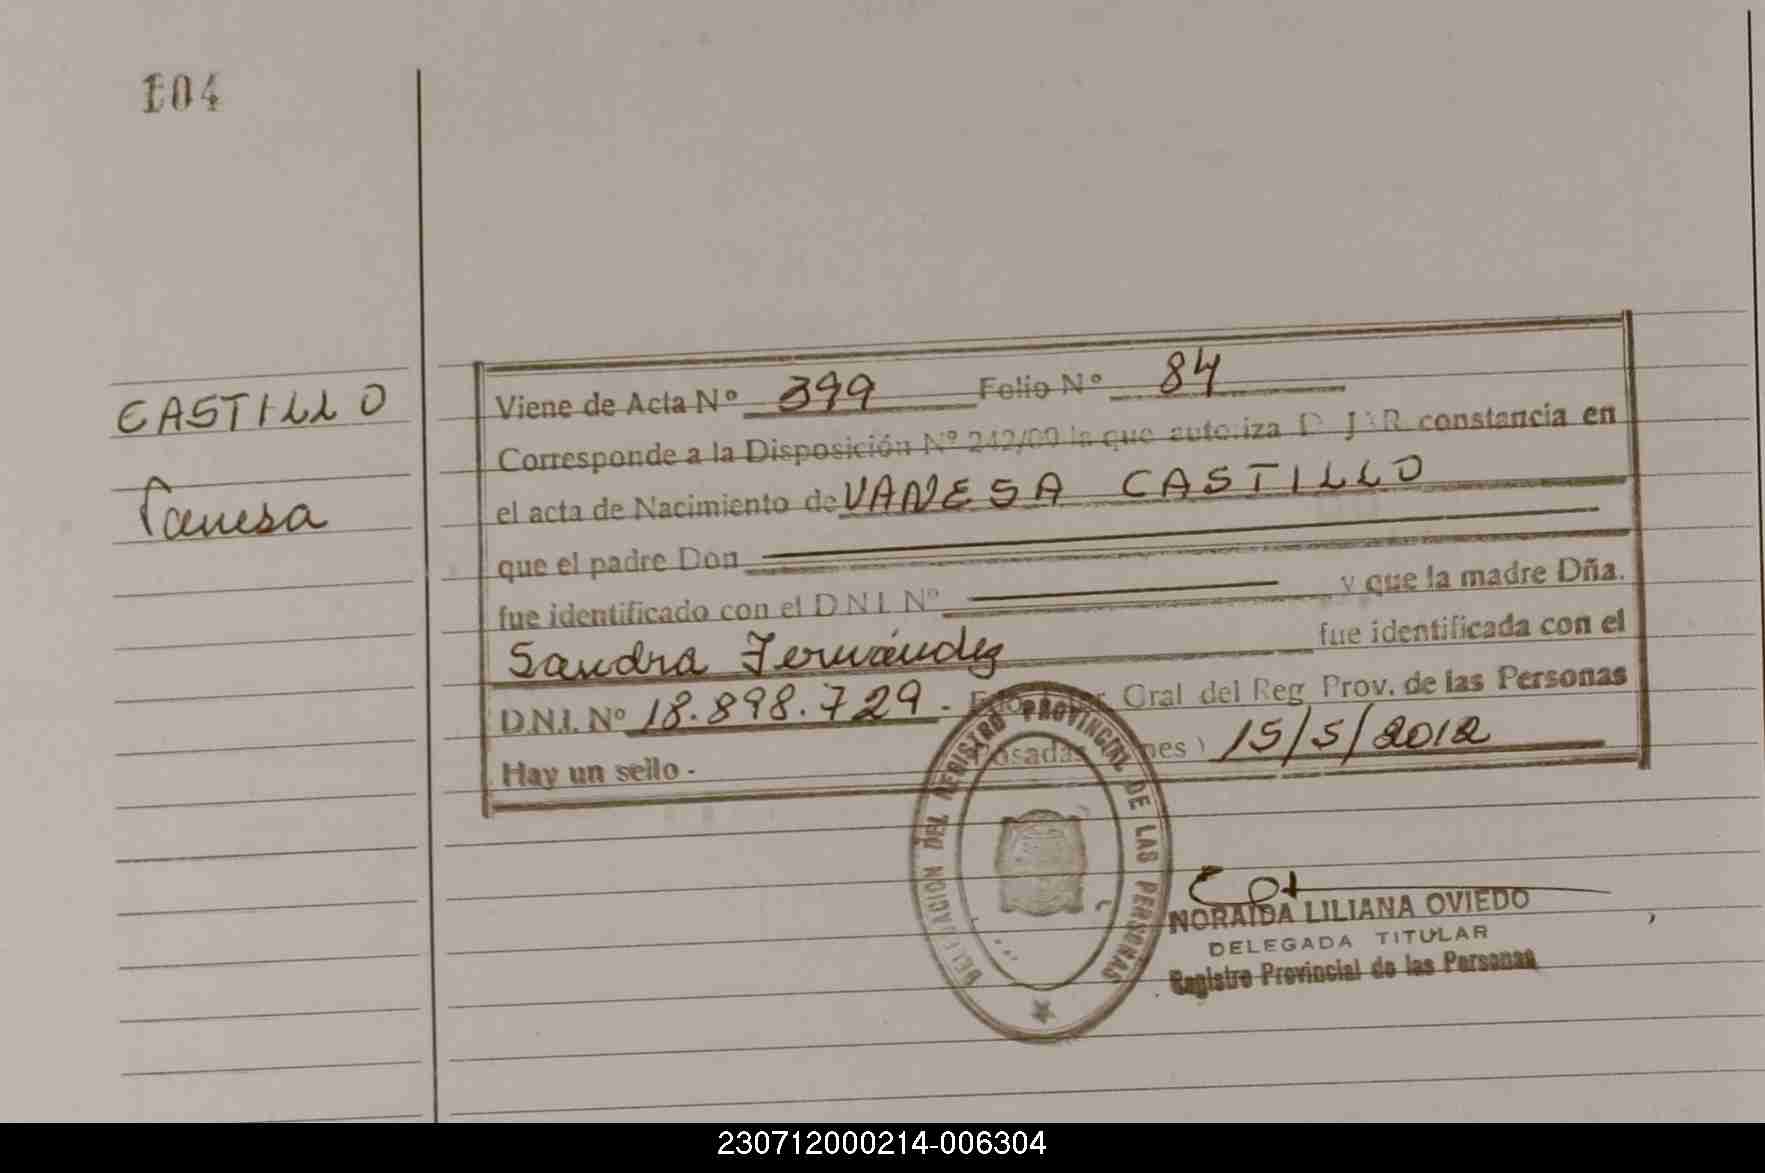 104
CASTILLO
Vanesa
Viene de Acta Nº 399 Folio Nº 84
Corresponde a la Disposición Nº 242/00 la que autoriza D J R constancia en
el acta de Nacimiento de VANESA CASTILLO
que el padre Don
fue identificado con el D.N.I. Nº y que la madre Dña.
Sandra Fernández fue identificada con el
D.N.I. Nº 18.898.729. Gral del Reg Prov. de las Personas
Hay un sello. 15/5/2012
DELEGACION DEL REGISTRO PROVINCIAL DE LAS PERSONAS
NORAIDA LILIANA OVIEDO
DELEGADA TITULAR
Registro Provincial de las Personas
230712000214-006304